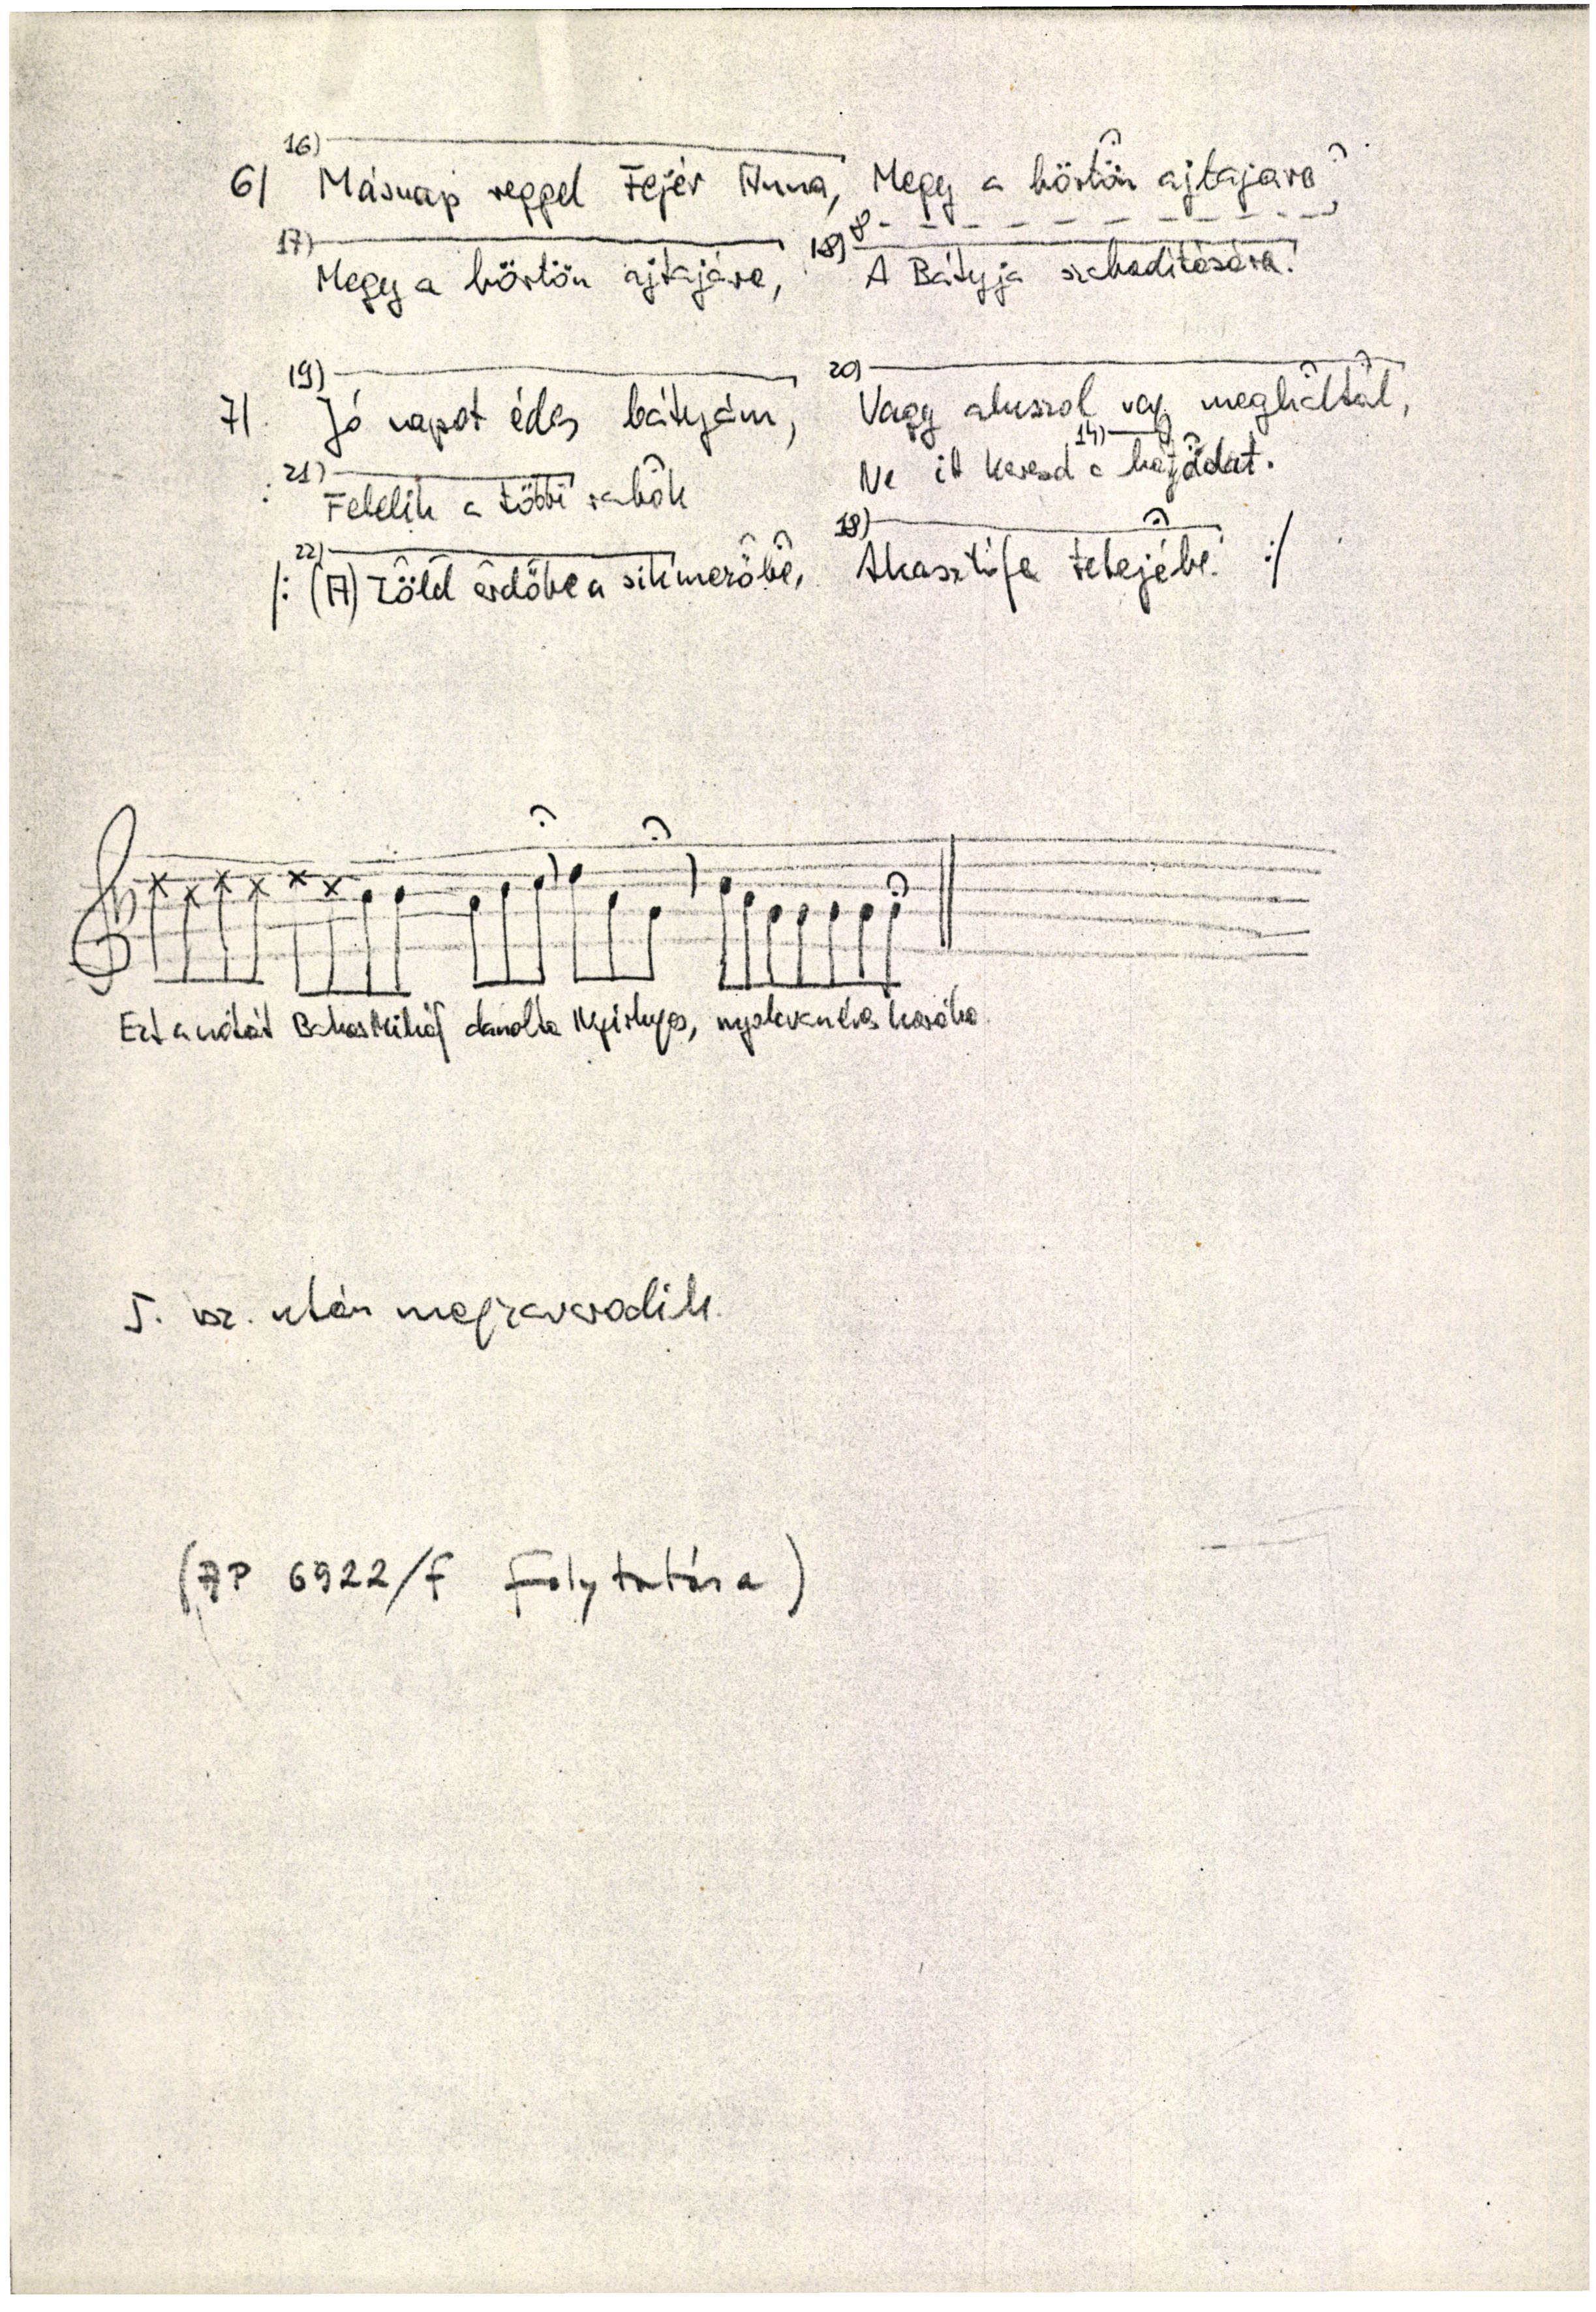 16)
6/ Másnap reggel Fejér Anna, Megy a börtön ajtajára,
17) 18) 8
Megy a börtön ajtajáre, A Bátyja szabaditására.
19) 20)
7/. Jó napot édes bátyám, Vagy aluszol vagy meghaltál,
21) 14)
Felelik a többi rabok Ne itt keresd a bátyádat.
22) 18)
/: (A) Zöld erdőbe a sikmezőbe, Akasztófa tetejébe. :/
Ezt a nótát Bakos Mihály danolta Nyirlugos, nyolcvanéves korába.
5. vsz. után megzavarodik.
(AP 6922/f folytatása)